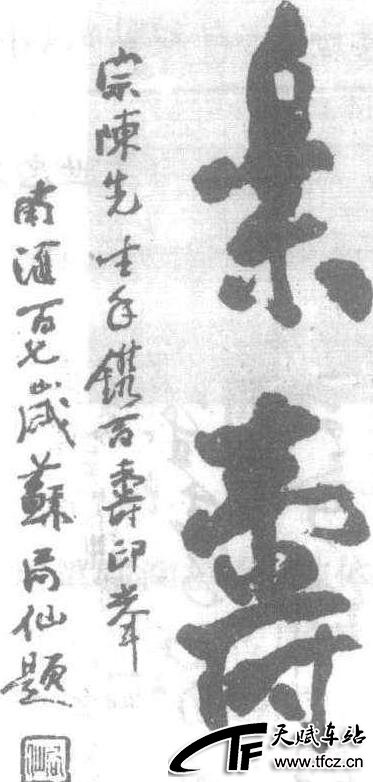 集壽
宗陳先生手鐫百壽印
南滙百七歲蘇局仙題
天赋车站
www.tfcz.cn